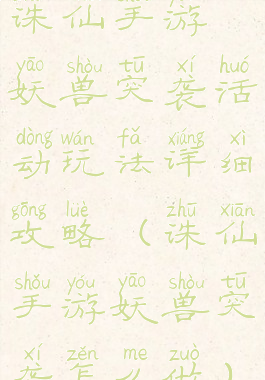 诛仙手游
yāo shòu tū xí huó
妖兽突袭活
dòng wán fǎ xiáng xì
动玩法详细
gōng lüè zhū xiān
攻略（诛仙
shǒu yóu yāo shòu tū
手游妖兽突
xí zěn me zuò
袭怎么做）